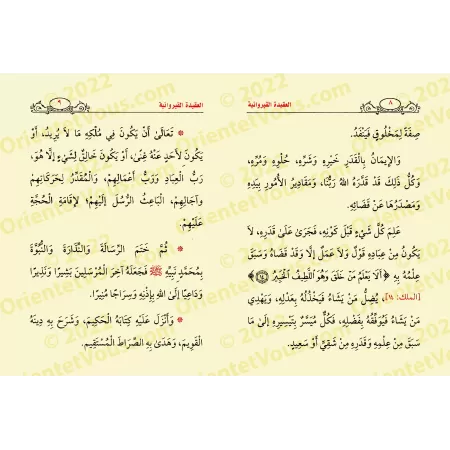 ٨
العقيدة القيروانية
صِفَةٌ لِمَخْلُوقٍ فَيَنْفَدُ.
وَالإِيمَانُ بِالْقَدَرِ خَيْرِهِ وَشَرِّهِ، حُلْوِهِ وَمُرِّهِ،
وَكُلُّ ذَلِكَ قَدْ قَدَّرَهُ اللهُ رَبُّنَا، وَمَقَادِيرُ الأُمُورِ بِيَدِهِ
وَمَصْدَرُهَا عَنْ قَضَائِهِ.
عَلِمَ كُلَّ شَيْءٍ قَبْلَ كَوْنِهِ، فَجَرَىٰ عَلَىٰ قَدَرِهِ، لَا
يَكُونُ مِنْ عِبَادِهِ قَوْلٌ وَلَا عَمَلٌ إِلَّا وَقَدْ قَضَاهُ وَسَبَقَ
عِلْمُهُ بِهِ ﴿أَلَا يَعْلَمُ مَنْ خَلَقَ وَهُوَ اللَّطِيفُ الْخَبِيرُ ١٤﴾
[الملك: ١٤]، يُضِلُّ مَنْ يَشَاءُ فَيَخْذُلُهُ بِعَدْلِهِ، وَيَهْدِي
مَنْ يَشَاءُ فَيُوَفِّقُهُ بِفَضْلِهِ، فَكُلٌّ مُيَسَّرٌ بِتَيْسِيرِهِ إِلَىٰ مَا
سَبَقَ مِنْ عِلْمِهِ وَقَدَرِهِ مِنْ شَقِيٍّ أَوْ سَعِيدٍ.
العقيدة القيروانية
٩
* تَعَالَىٰ أَنْ يَكُونَ فِي مُلْكِهِ مَا لَا يُرِيدُ، أَوْ
يَكُونَ لِأَحَدٍ عَنْهُ غِنًى، أَوْ يَكُونَ خَالِقٌ لِشَيْءٍ إِلَّا هُوَ،
رَبُّ الْعِبَادِ وَرَبُّ أَعْمَالِهِمْ، وَالْمُقَدِّرُ لِحَرَكَاتِهِمْ
وَآجَالِهِمْ، الْبَاعِثُ الرُّسُلَ إِلَيْهِمْ؛ لِإِقَامَةِ الْحُجَّةِ
عَلَيْهِمْ.
* ثُمَّ خَتَمَ الرِّسَالَةَ وَالنِّذَارَةَ وَالنُّبُوَّةَ
بِمُحَمَّدٍ نَبِيِّهِ ﷺ فَجَعَلَهُ آخِرَ الْمُرْسَلِينَ بَشِيرًا وَنَذِيرًا
وَدَاعِيًا إِلَى اللهِ بِإِذْنِهِ وَسِرَاجًا مُنِيرًا.
* وَأَنْزَلَ عَلَيْهِ كِتَابَهُ الْحَكِيمَ، وَشَرَحَ بِهِ دِينَهُ
الْقَوِيمَ، وَهَدَىٰ بِهِ الصِّرَاطَ الْمُسْتَقِيمَ.
OrientetVous.com © 2022